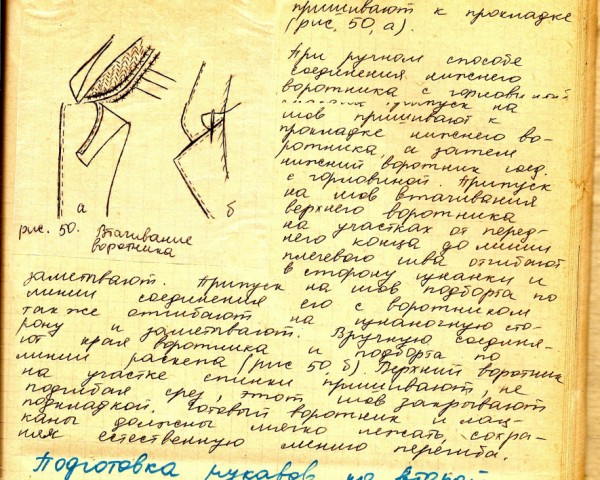 пришивают к прокладке
(рис. 50, а).
При ручном способе
соединения нижнего
воротника с горловиной
припуск на
шов пришивают к
прокладке нижнего во-
ротника, а затем
нижний воротник соед.
с горловиной. Припуск
на шов втачивания
верхнего воротника
на участках от перед-
него конца до линии
плечевого шва отгибают
в сторону изнанки и
а
б
рис. 50. Втачивание
воротника
заметывают. Припуск на шов подборта по
линии соединения его с воротником
также отгибают на изнаночную сто-
рону и заметывают. Вручную соединя-
ют края воротника и подборта по
линии раскепа (рис 50. б). Верхний воротник
на участке спинки пришивают, не
подгибая срез, этот шов закрывают
подкладкой. Готовый воротник и лац-
каны должны мягко лежать, сохра-
няя естественную линию перегиба.
Подготовка рукавов ко второй